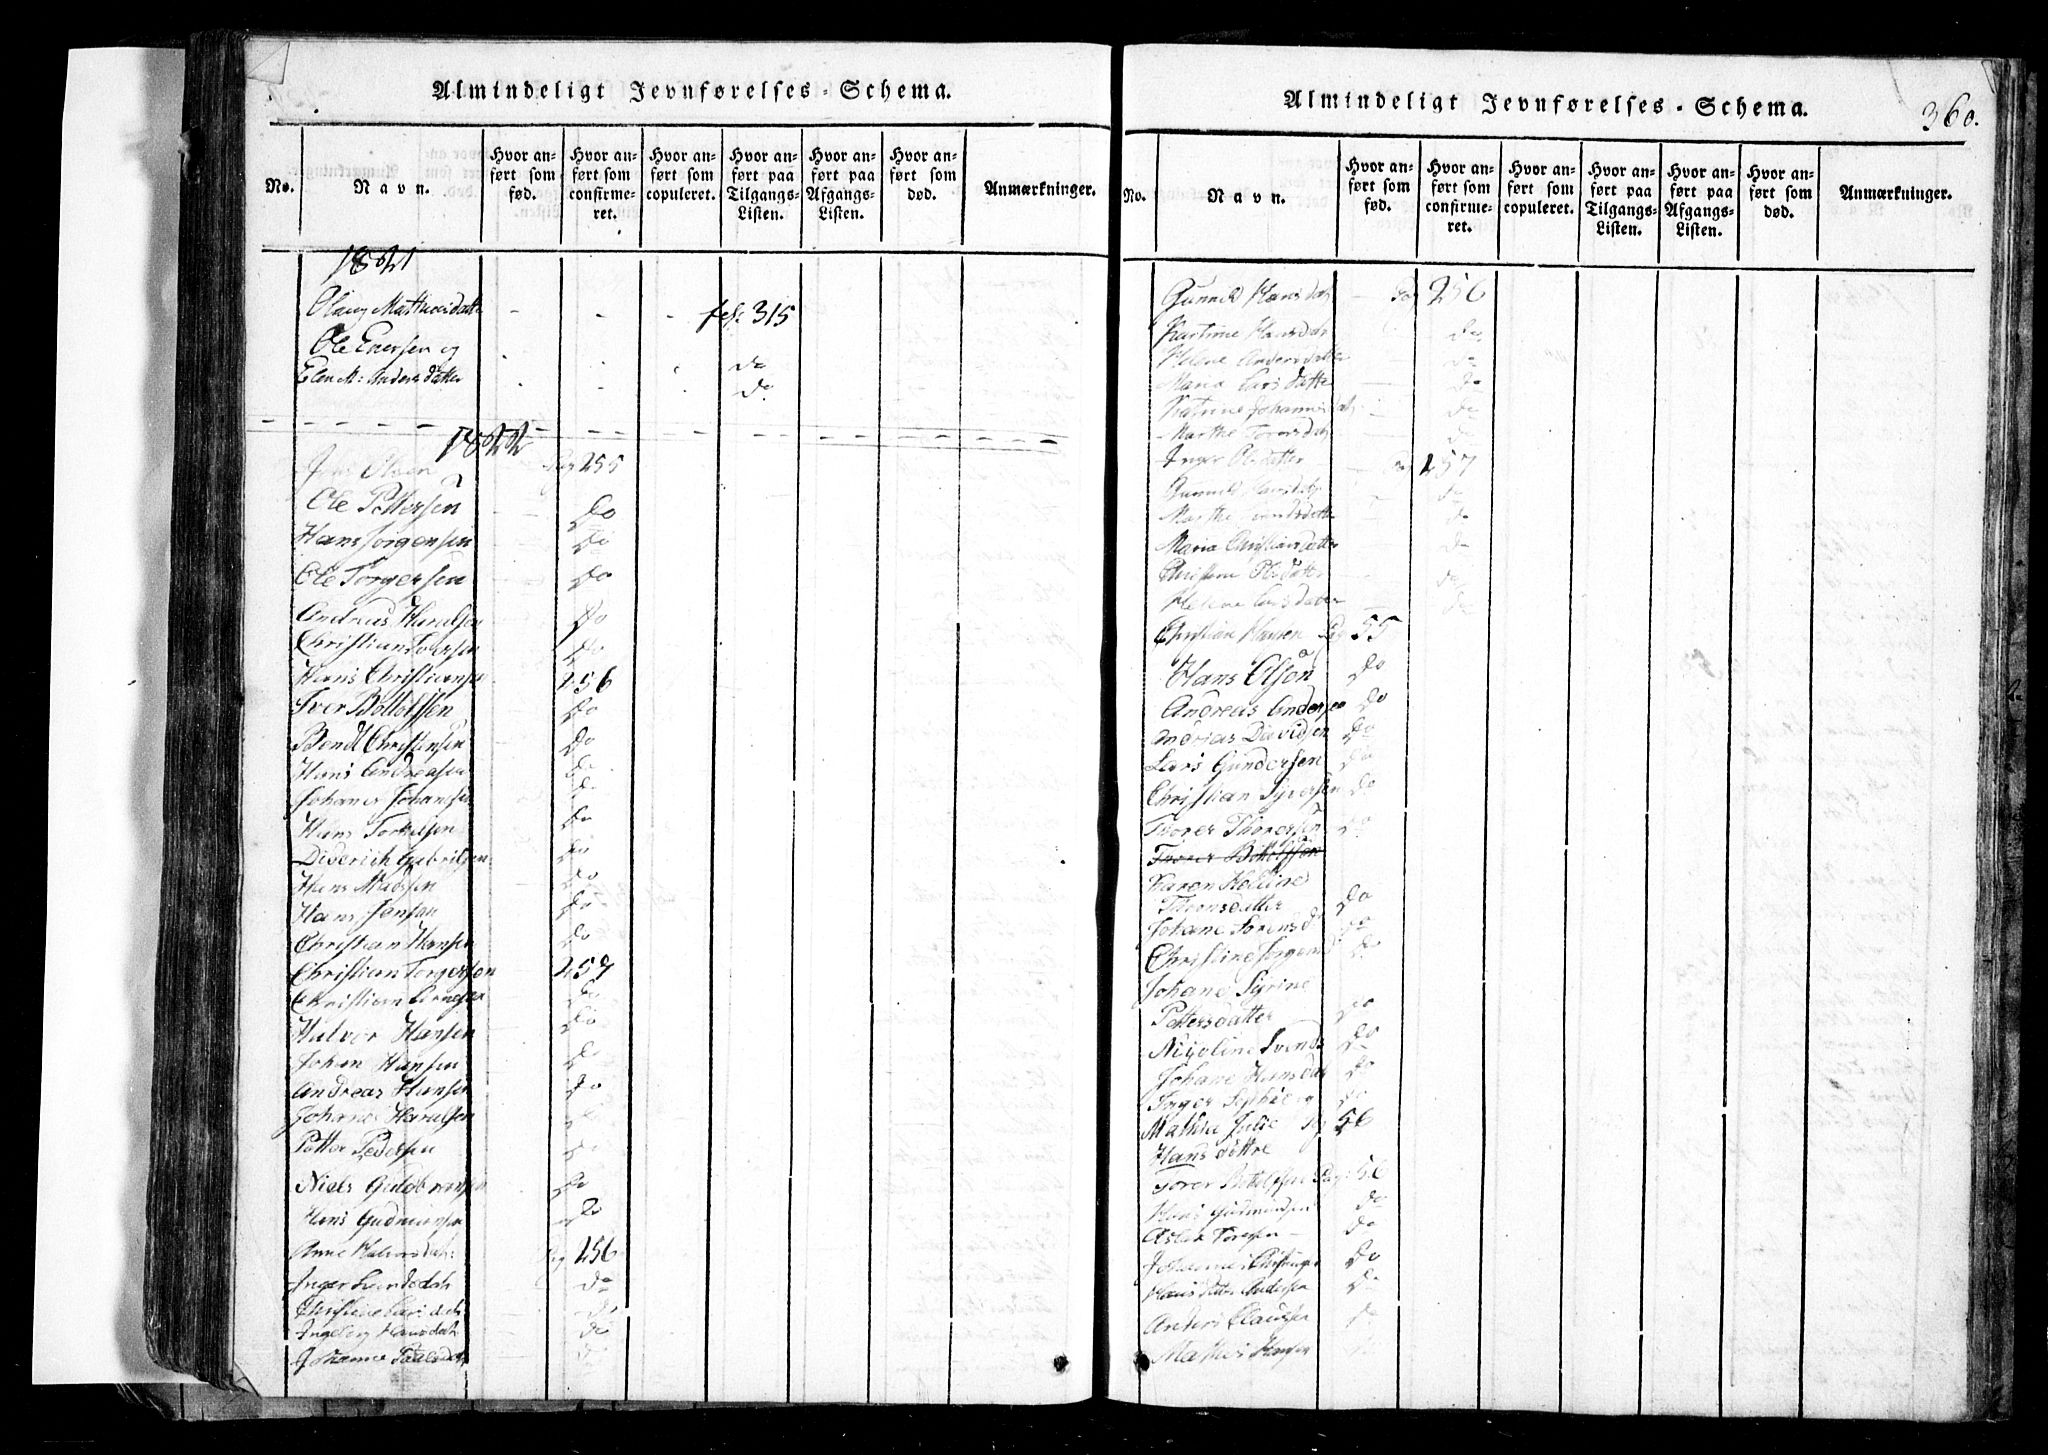 Almindeligt Jevnførelses-Schema.
No.
Navn.
Hvor anført som fød.
Hvor anført som confirmeret.
Hvor anført som copuleret.
Hvor anført paa Tilgangs-Listen.
Hvor anført paa Afgangs-Listen.
Hvor anført som død.
Anmærkninger.
1821
fol: 315
Ole Enersen og
do
Elen M: Andersdatter
do
1822
Jens Olsen Pag 255
Ole Pettersen Do
Hans Jorgensen Do
Ole Torgersen Do
Andreas Haralsen Do
Christian Do
Hans Christiansen 256
Iver Bottolfsen Do
Bendt Christensen Do
Hans Andreasen Do
Johanes Johansen Do
Hans Torkelsen Do
Diderich Gabrielsen Do
Hans Madsen Do
Hans Jensen Do
Christian Hansen Do
Christian Torgersen 257
Christian Arnesen Do
Halvor Hansen Do
Johan Hansen Do
Andreas Hansen Do
Johanes Haralsen Do
Petter Pedersen Do
Niels Guldbransen Do
Hans Gudmunsen Do
Anne Halvorsdatr: Pag 256
Inger do
Christine Larsdatr do
Ingeborg Hansdatr do
Johanne do
Almindeligt Jevnførelses-Schema.
360.
No.
Navn.
Hvor anført som fød.
Hvor anført som confirmeret.
Hvor anført som copuleret.
Hvor anført paa Tilgangs-Listen.
Hvor anført paa Afgangs-Listen.
Hvor anført som død.
Anmærkninger.
Gunnild Hansdatr Pag 256
Hansdatr do
Helene Andersdatter do
Maria Larsdatter do
Katrine Johannesdatr do
Marthe do
Inger Olsdatter Pag 257
Gunnild do
Marthe do
Maria Christiansdatter do
Christine Olsdatter do
Helene Larsdatter do
Christian Hansen Pag 55
Hans Olsøn Do
Andreas Andersen Do
Andrias Davidsen Do
Lars Gundersen Do
Christian Syversen Do
Thorer Thoressen Do
Thorer Bottolfssøn
Karen Heline
Thorsdatter Do
Johane Sørensd Do
Christine Do
Johane Syrine
Pettersdatter Do
Nicoline Svends Do
Johane Hansdat Do
Inger Sophie og Do
Mathie Julie Pag 56
Hans døttre
Torer Bottolfsen Pag: 56
Hans Gudmundsen do
Aslak Toresen do
Johannes Do
Hans Andersen Do
Anders Claussen do
Mathis Hansen